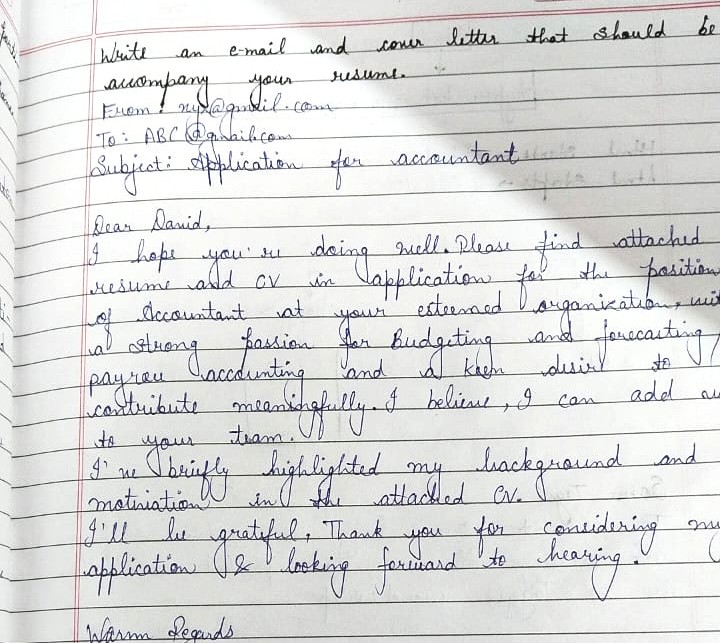 Write an e-mail and cover letter that should be
accompany your resume.
From: xyz@gmail.com
To: ABC@gmail.com
Subject: Application for accountant
Dear David,
I hope you're doing well. Please find attached
resume and CV in application for the position
of Accountant at your esteemed organization, wit
a strong passion for Budgeting and forecasting,
payroll accounting and a keen desire to
contribute meaningfully. I believe, I can add
to your team.
I've briefly highlighted my background and
motivation in the attached CV.
I'll be grateful, Thank you for considering my
application & looking forward to hearing.
Warm Regards